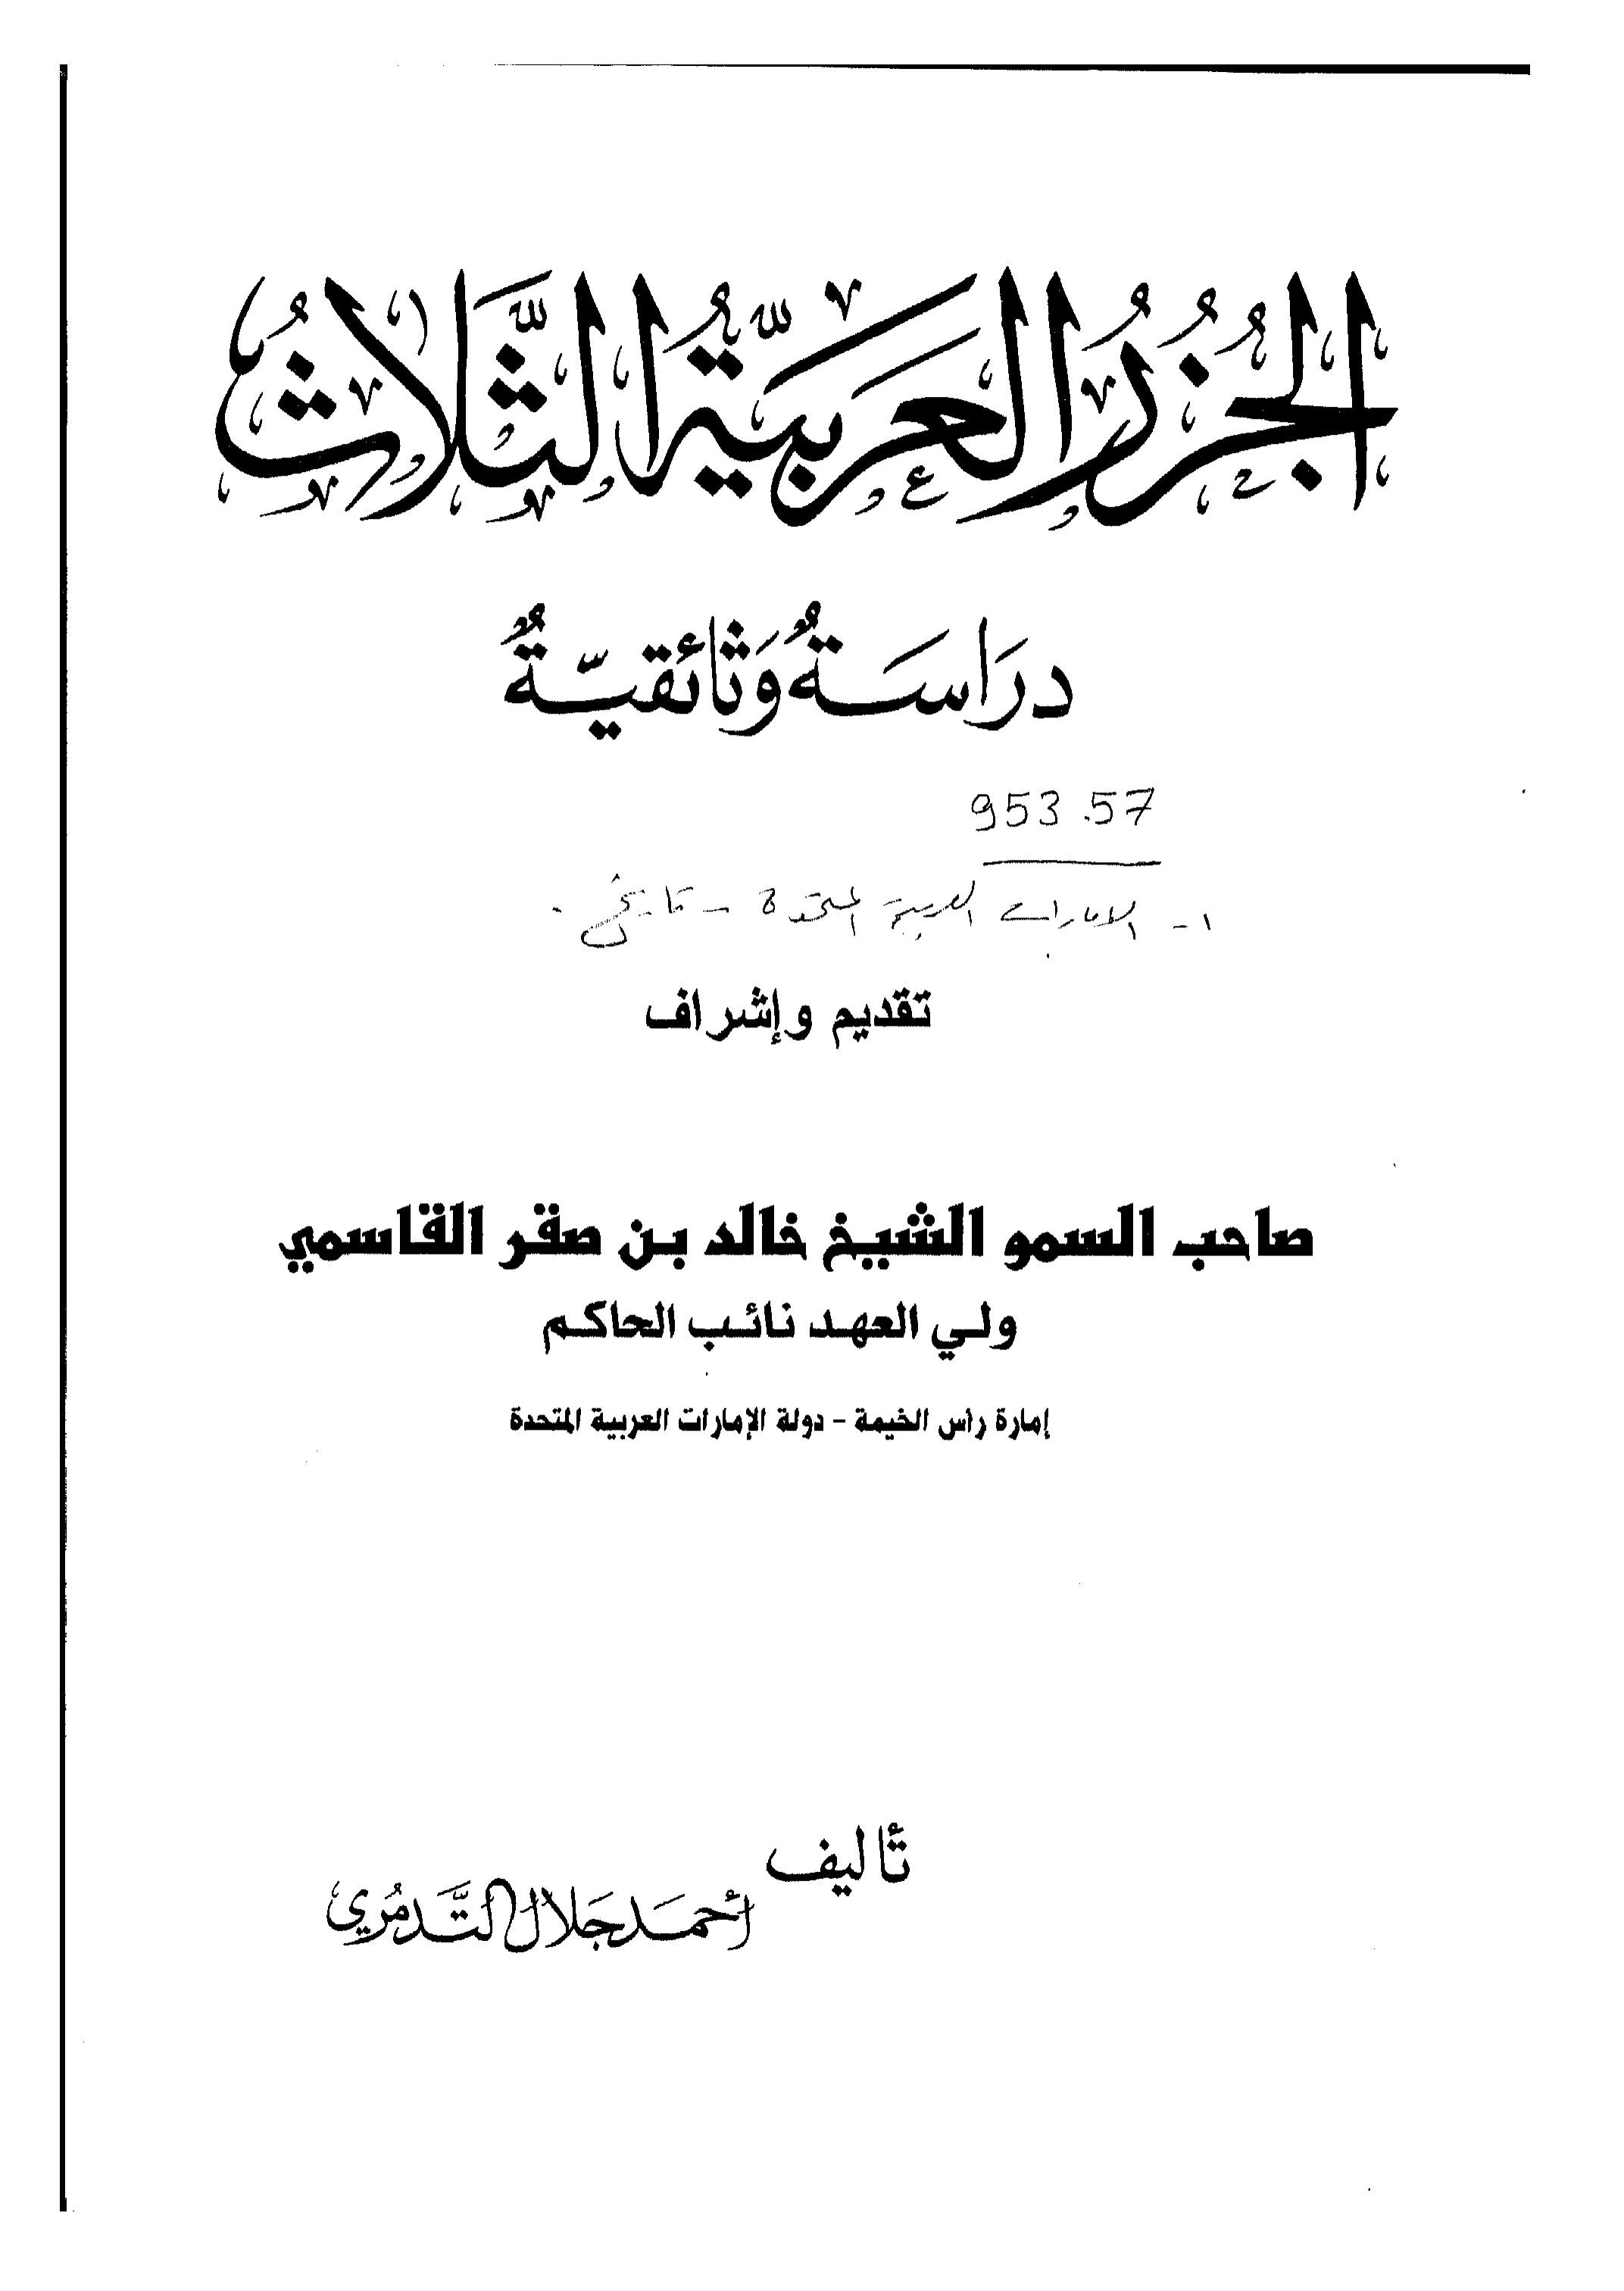 الجُزُرُ العَرَبيَّةُ الثَّلاثُ
دِرَاسَةٌ وَثائقيّةٌ
953.57
١- الامارات العربية المتحدة - تاريخ .
تقديم وإشراف
صاحب السمو الشيخ خالد بن صقر القاسمي
ولي العهد نائب الحاكم
إمارة رأس الخيمة - دولة الإمارات العربية المتحدة
تأليف
أحمَد جَلال التَّدمُري